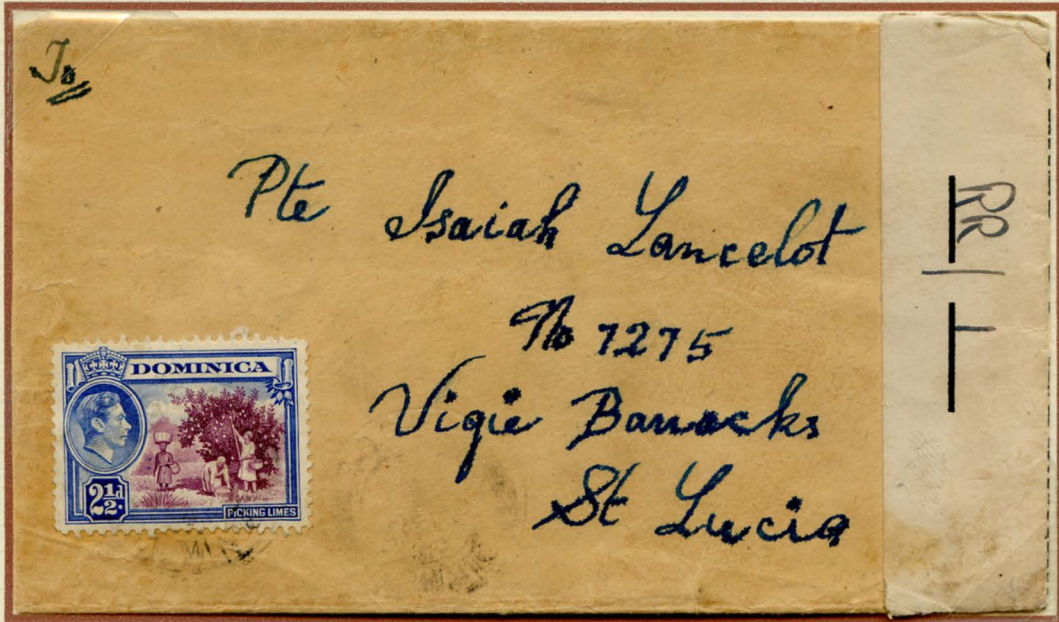 To
Pte Isaiah Lancelot
No 7275
Vigie Barracks
St Lucia
DOMINICA
2½d.
PICKING LIMES
RR/1